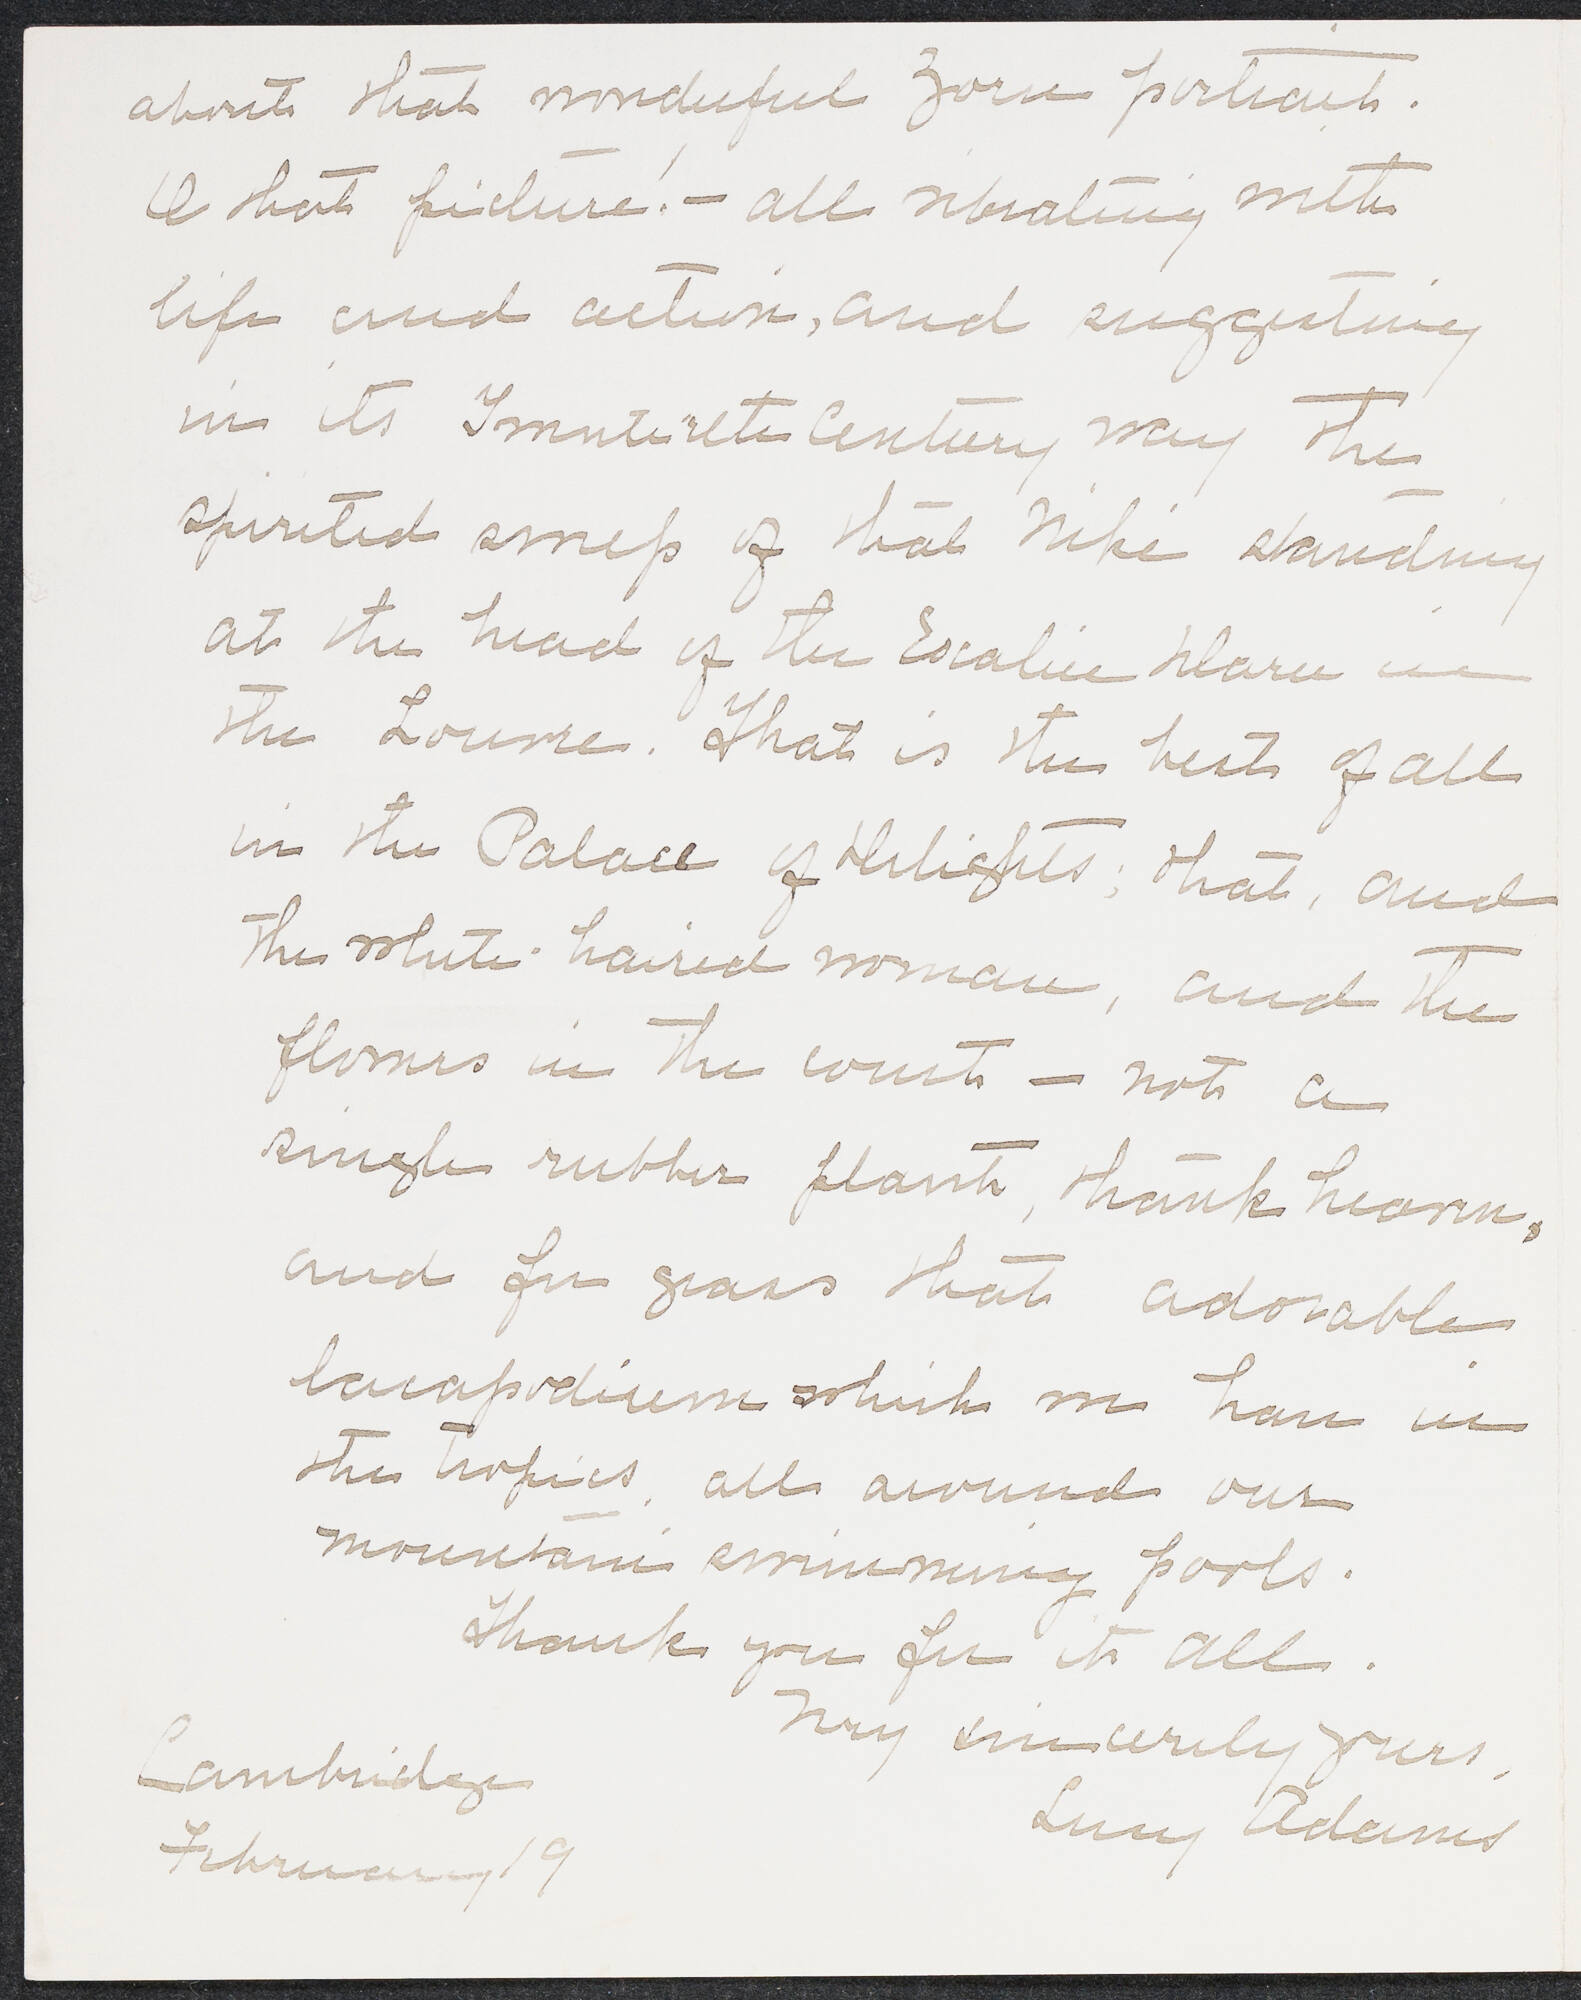 about that wonderful Zorn portrait.
O that picture! - all vibrating with
life and action, and suggesting
in its Twentieth Century way the
spirited sweep of that Niké standing
at the head of the Escalier Daru in
the Louvre. That is the best of all
in the Palace of Delights; that, and
the white-haired woman, and the
flowers in the court - not a
single rubber plant, thank heaven,
and for grass that adorable
which we have in
the tropics, all around our
mountain swimming pools.
Thank you for it all.
Very sincerely yours,
Lucy Adams
Cambridge
February 19